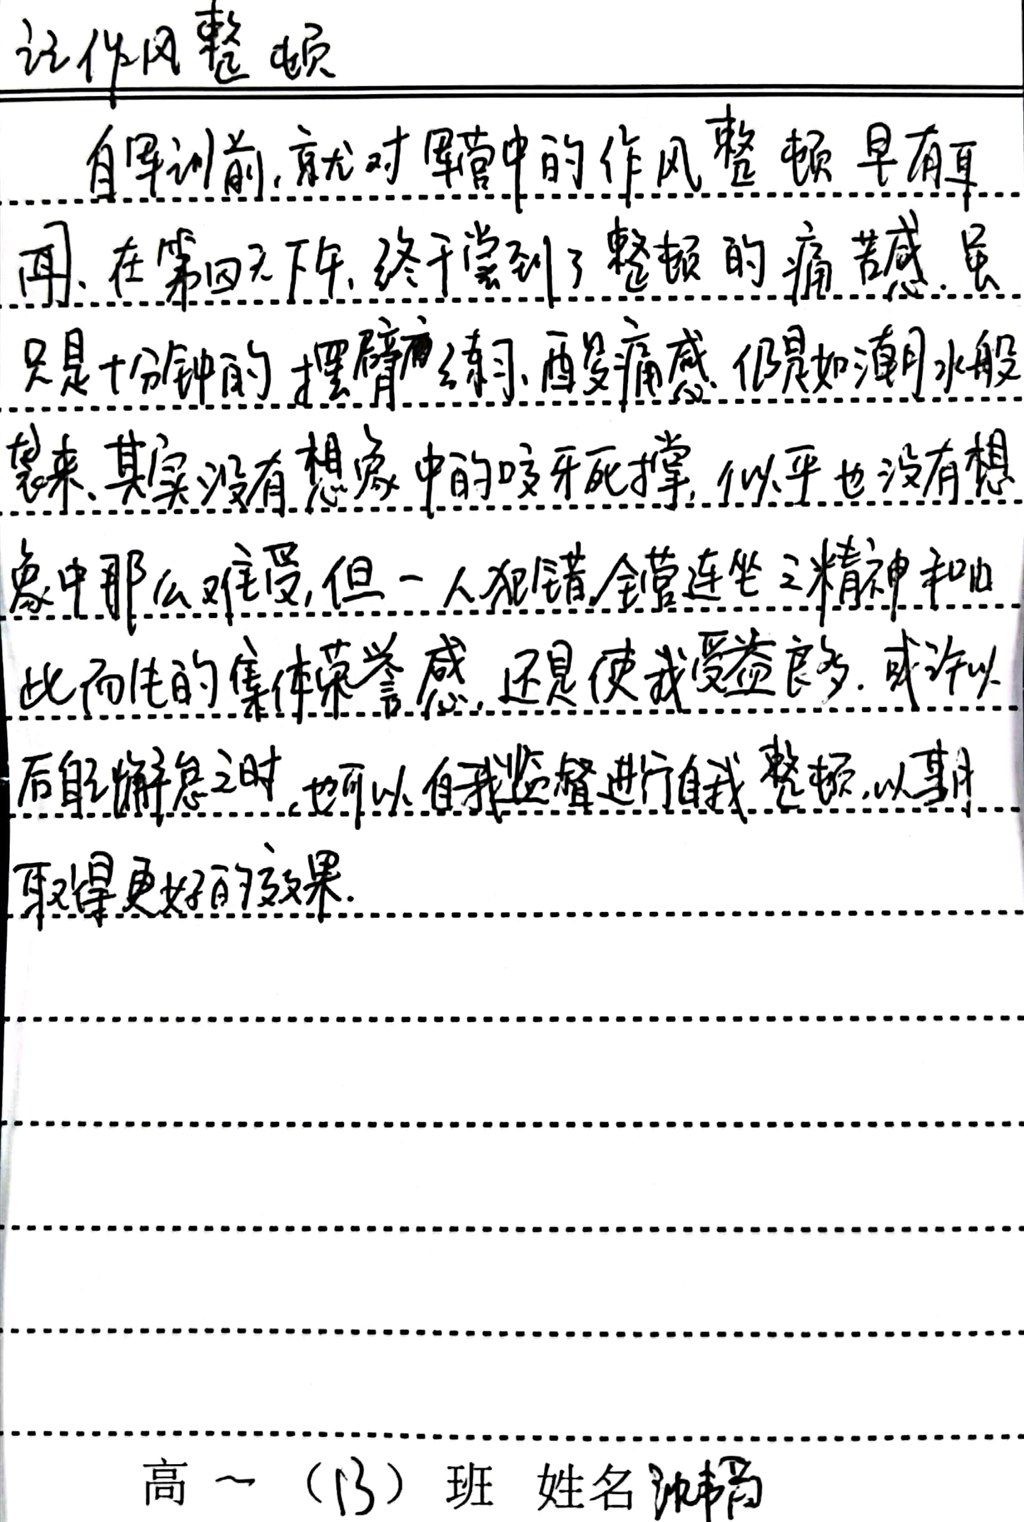 记作风整顿
自军训前,就对军营中的作风整顿早有耳
闻、在第四天下午,终于尝到了整顿的痛苦感.虽
只是十分钟的摆臂练习、酸痛感、仍是如潮水般
袭来、其实没有想象中的咬牙死撑,似乎也没有想
象中那么难受,但一人犯错,全营连坐之精神和由
此而生的集体荣誉感,还是使我受益良多.或许以
后自己懈怠之时,也可以自我监督进行自我整顿,以期
取得更好的效果.
高一(13)班 姓名沈